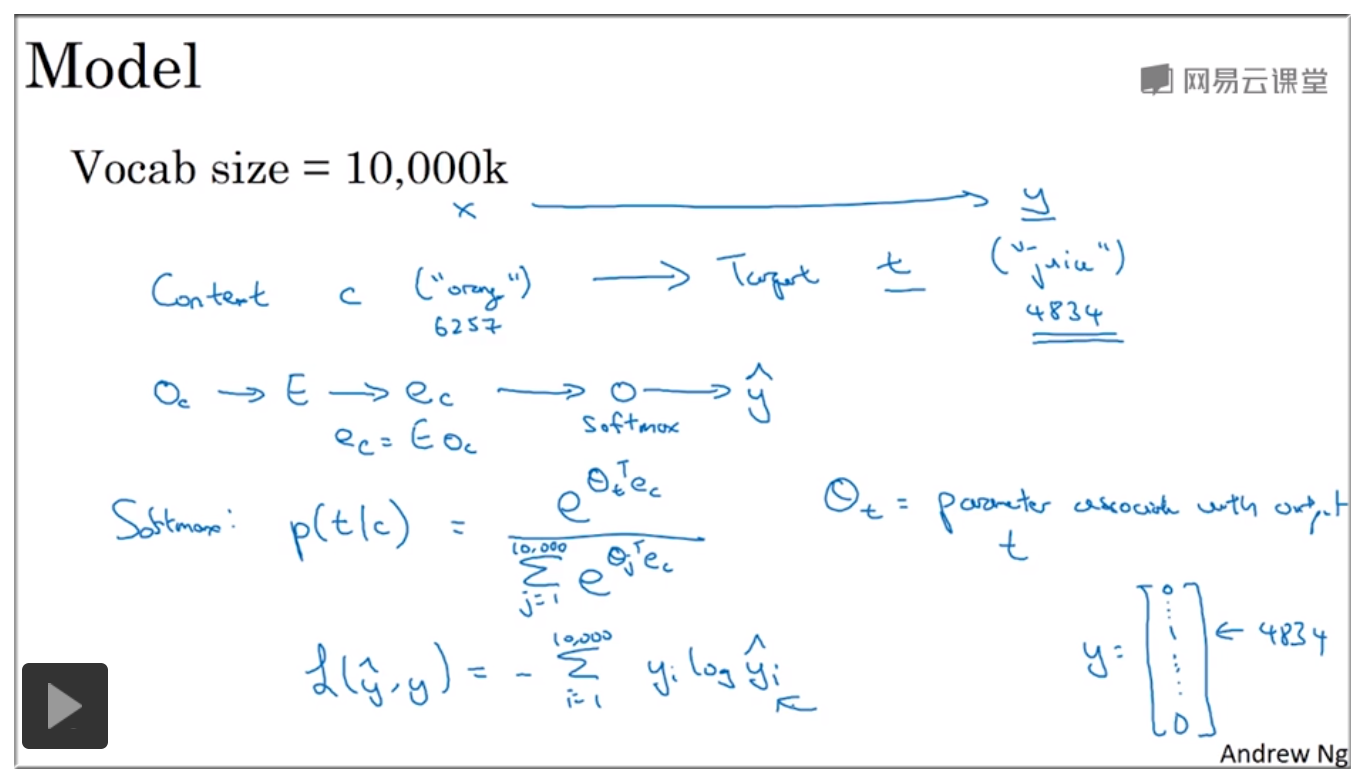 Model
网易云课堂
Vocab size = 10,000k
x → y
Context c ("orange") → Target t ("juice")
6257 4834
O_c → E → e_c → o → ŷ
softmax
e_c = E o_c
Softmax: p(t|c) = e^{θ_t^T e_c} / Σ_{j=1}^{10,000} e^{θ_j^T e_c}
θ_t = parameter associated with output t
L(ŷ,y) = - Σ_{i=1}^{10,000} y_i log ŷ_i ←
y = [0 ⋮ 1 ⋮ 0] ← 4834
Andrew Ng